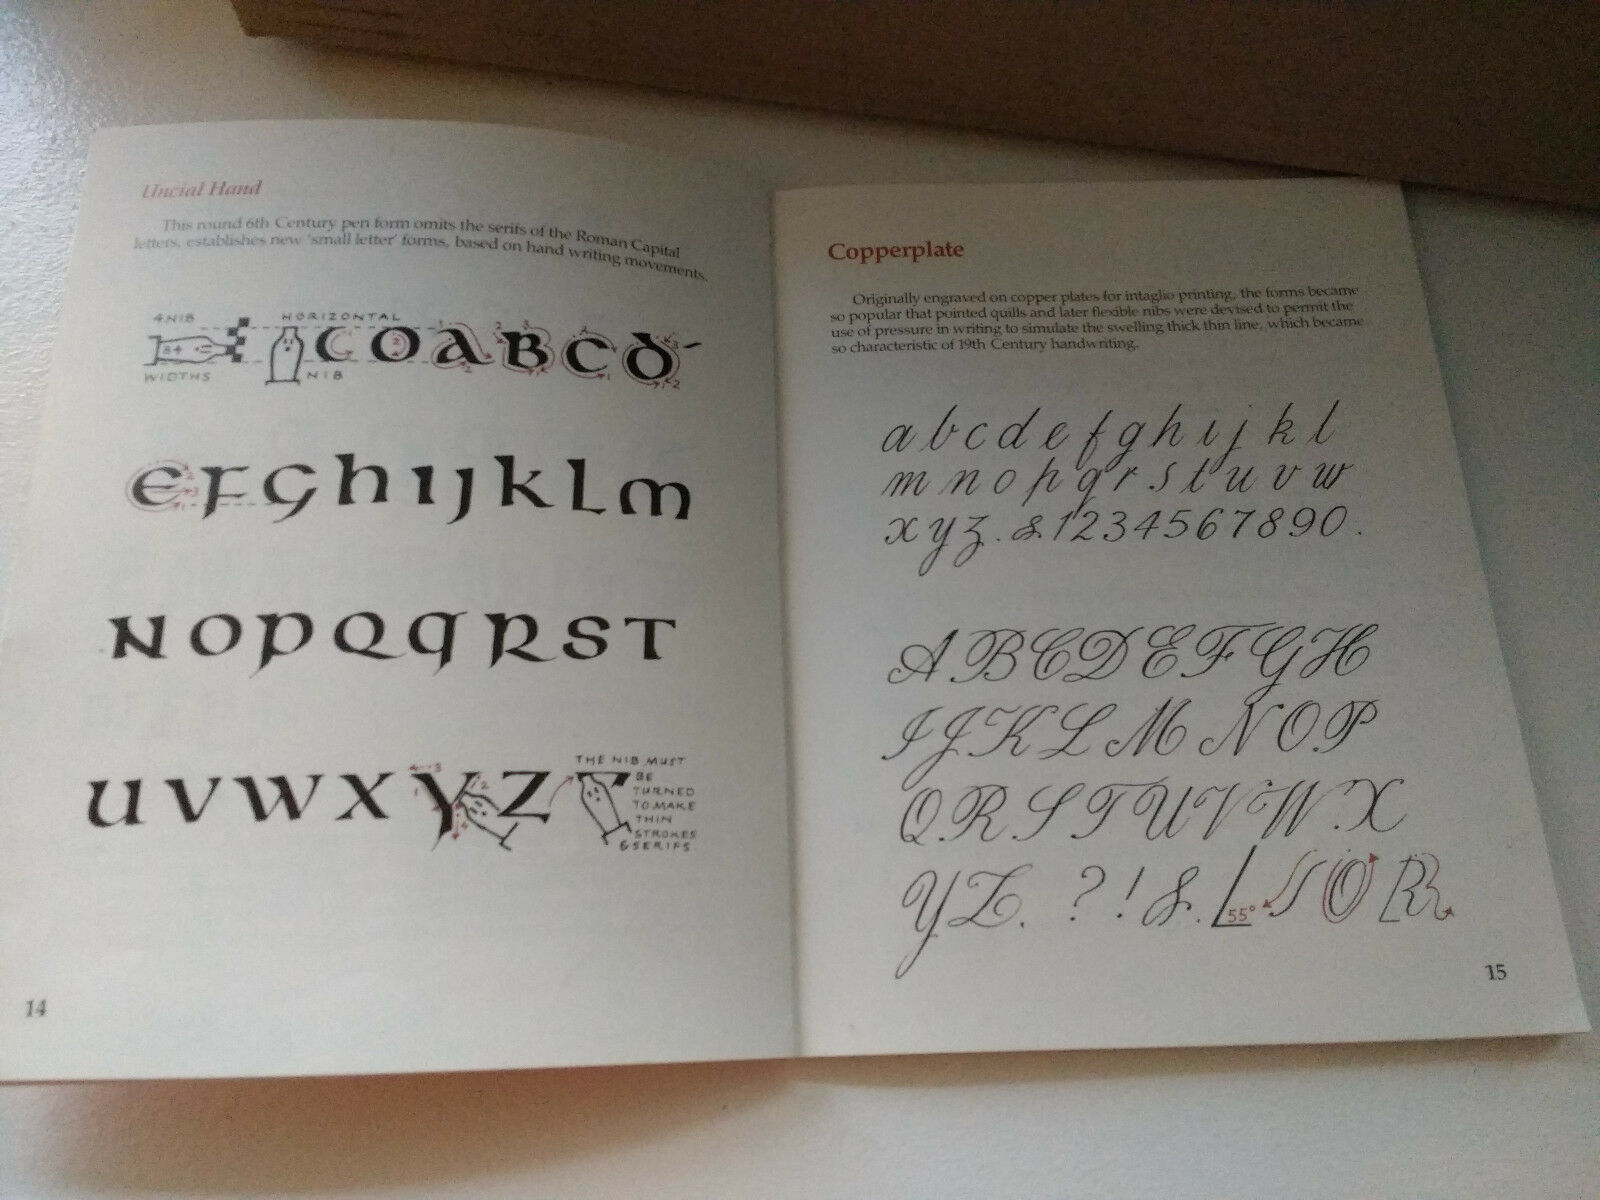 Uncial Hand
This round 6th Century pen form omits the serifs of the Roman Capital
letters, establishes new 'small letter' forms, based on hand writing movements.
4 NIB
WIDTHS
HORIZONTAL
NIB
C O A B C D
E F G H I J K L M
N O P Q q R S T
U V W X Y Z
THE NIB MUST
BE
TURNED
TO MAKE
THIN
STROKES
& SERIFS.
14
Copperplate
Originally engraved on copper plates for intaglio printing, the forms became
so popular that pointed quills and later flexible nibs were devised to permit the
use of pressure in writing to simulate the swelling thick thin line, which became
so characteristic of 19th Century handwriting.
a b c d e f g h i j k l
m n o p q r s t u v w
x y z . & 1 2 3 4 5 6 7 8 9 0 .
A B C D E F G H
I J K L M N O P
Q R S T U V W . X
Y Z . ? ! & . 55° S O R
15